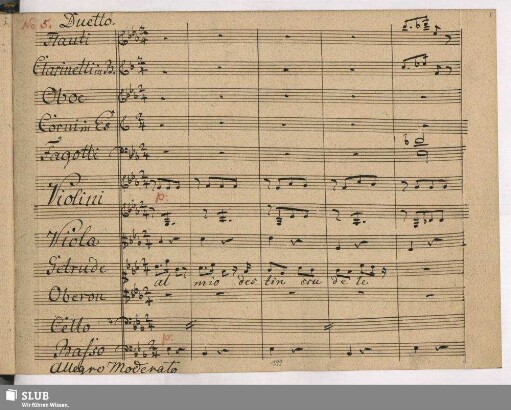 No 5. Duetto.
Flauti
Clarinetti in B.
Oboe
Corni in Es
Fagotti
Violini
p.
Viola
Getrude
al mio des tin cru de le
Oberon
Cello
p.
Basso
Allegro Moderato
SLUB
Wir führen Wissen.